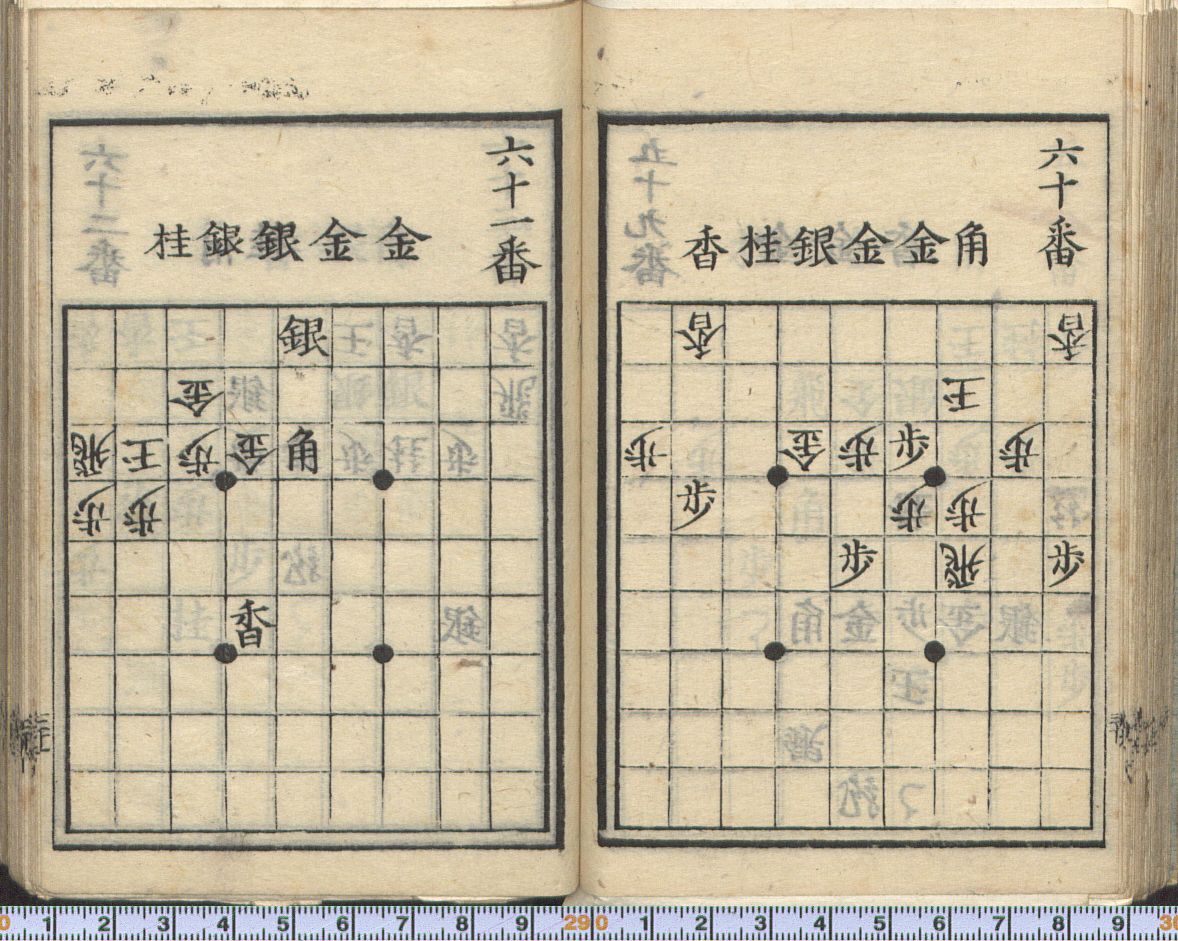 六十番
角金金銀桂香
香 香
王
歩 金 歩 歩 歩
歩 歩 歩
歩 飛 歩
六十一番
金金銀銀桂
銀
金
飛 王 歩 金 角
歩 歩
香
0 1 2 3 4 5 6 7 8 9 29 0 1 2 3 4 5 6 7 8 9 30